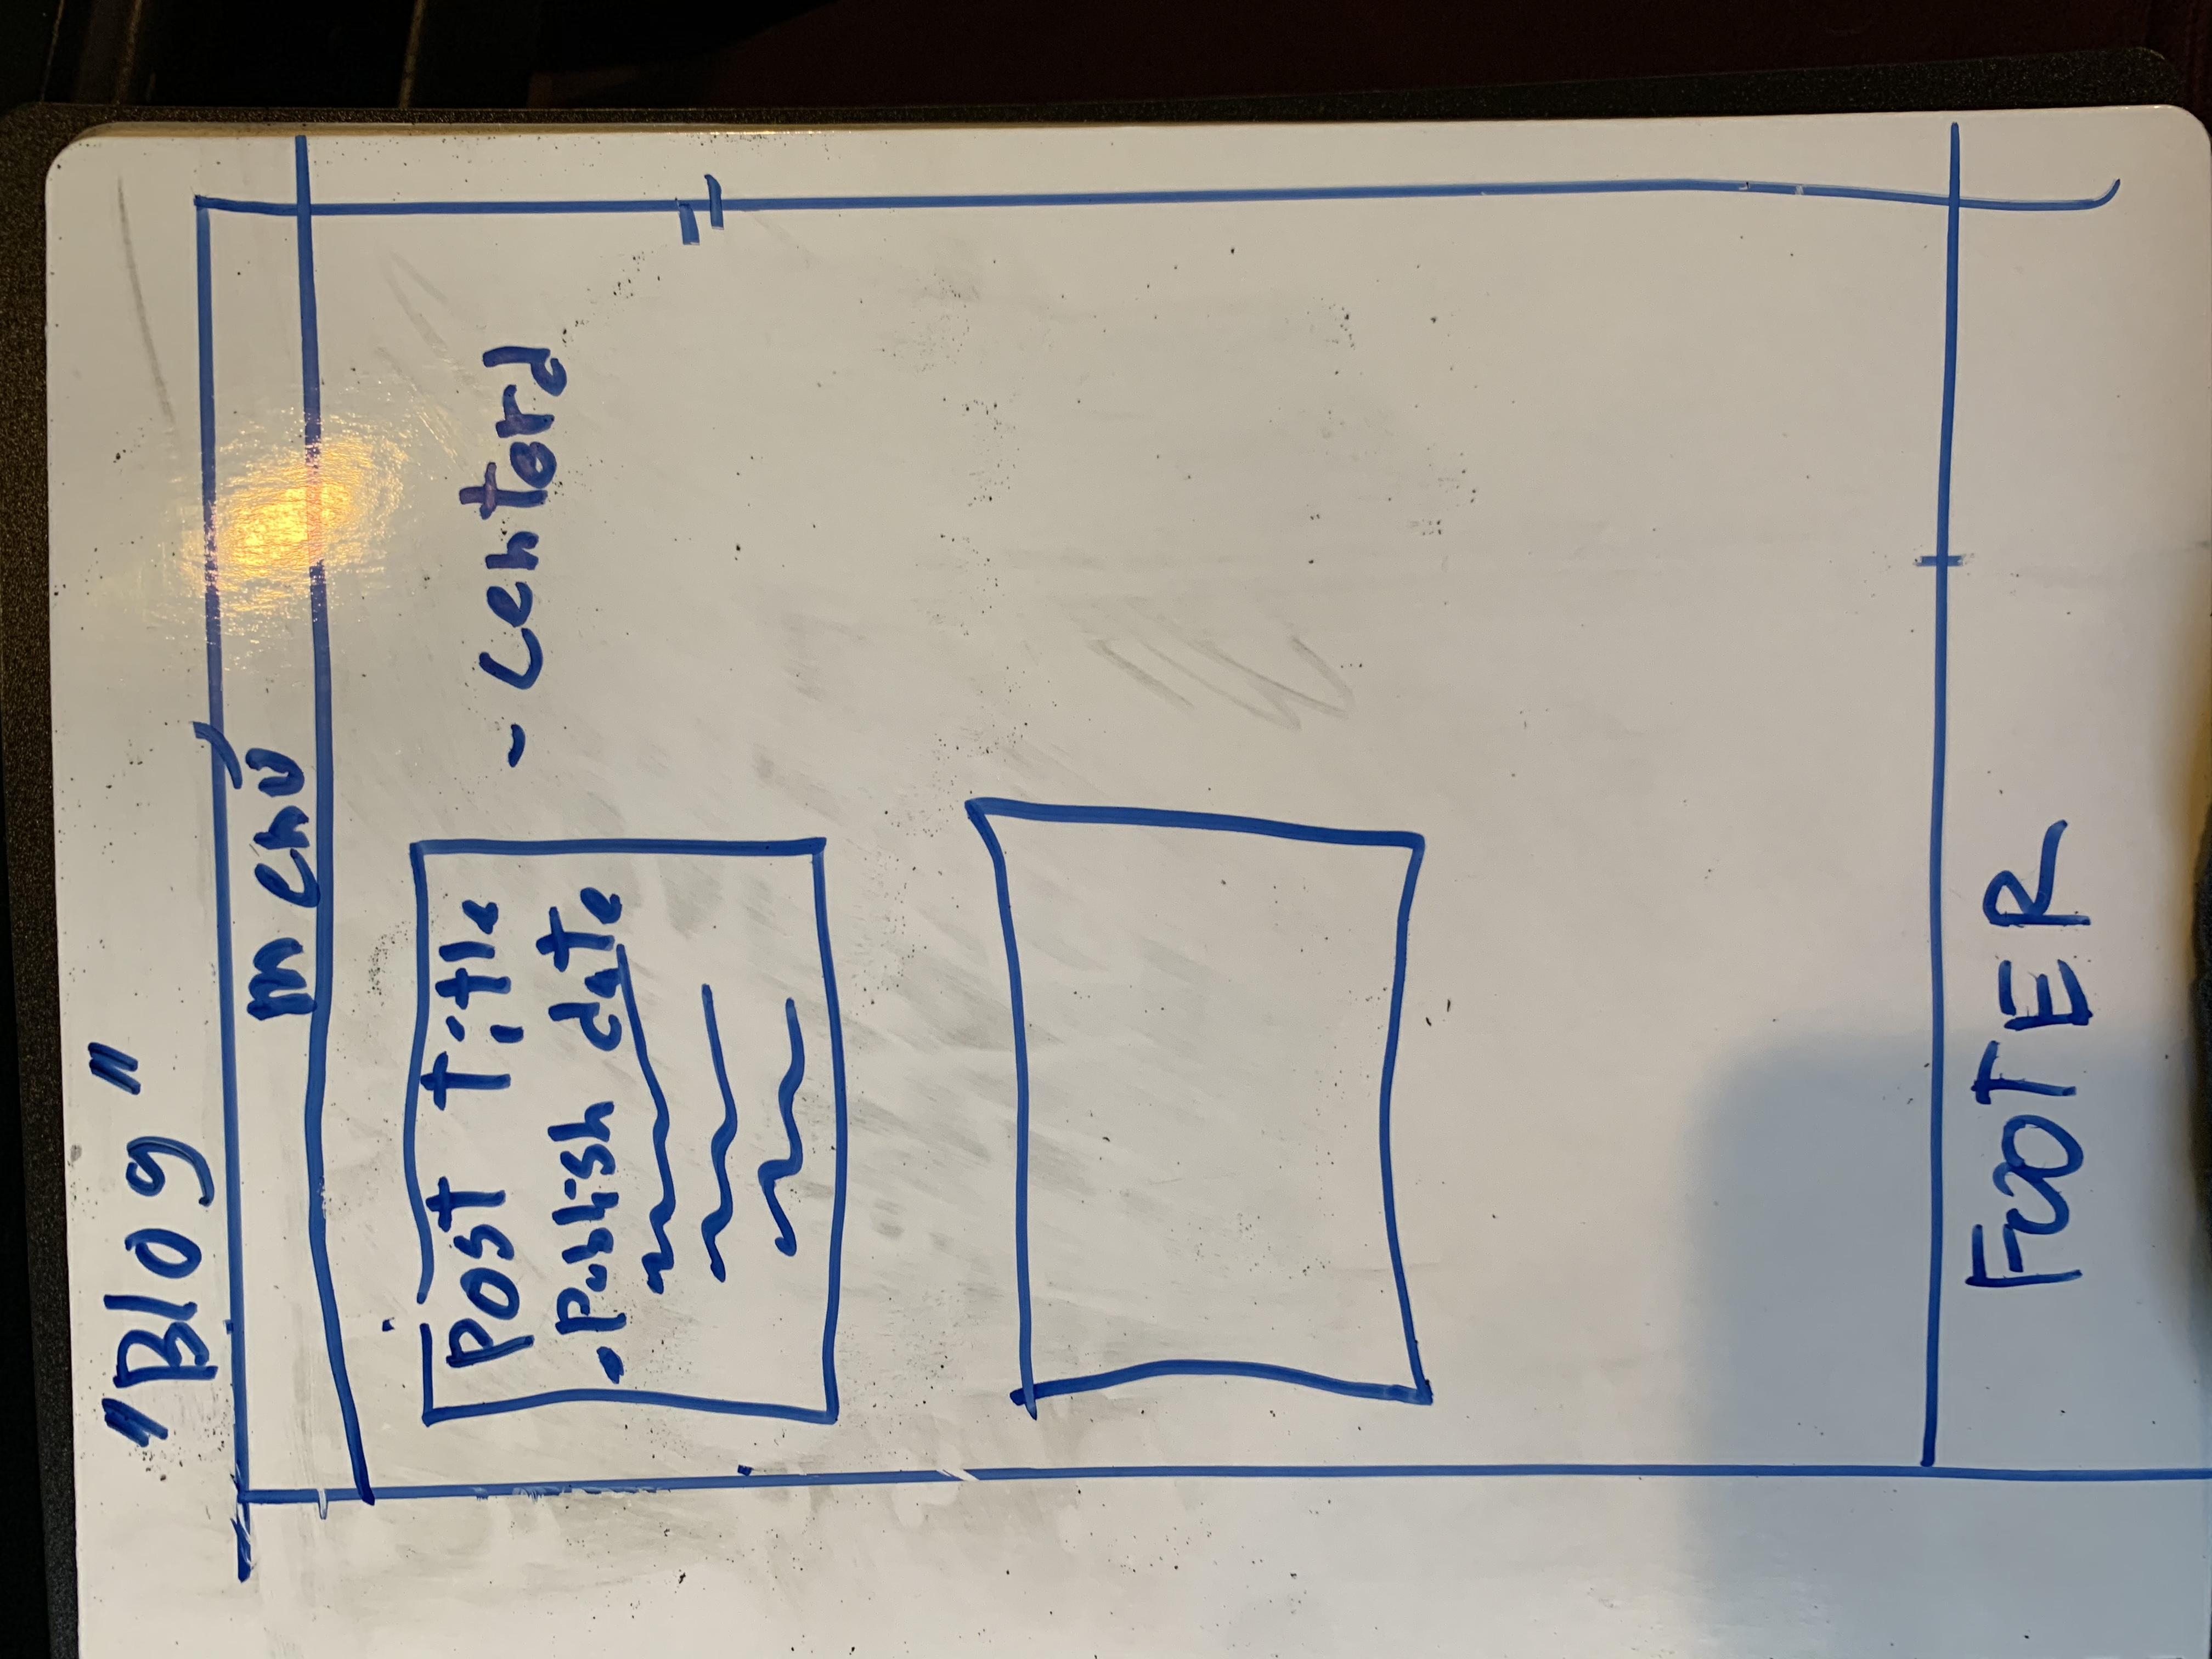 "Blog"
menú
Post Title
- Publish date
- Centerd
FOOTER